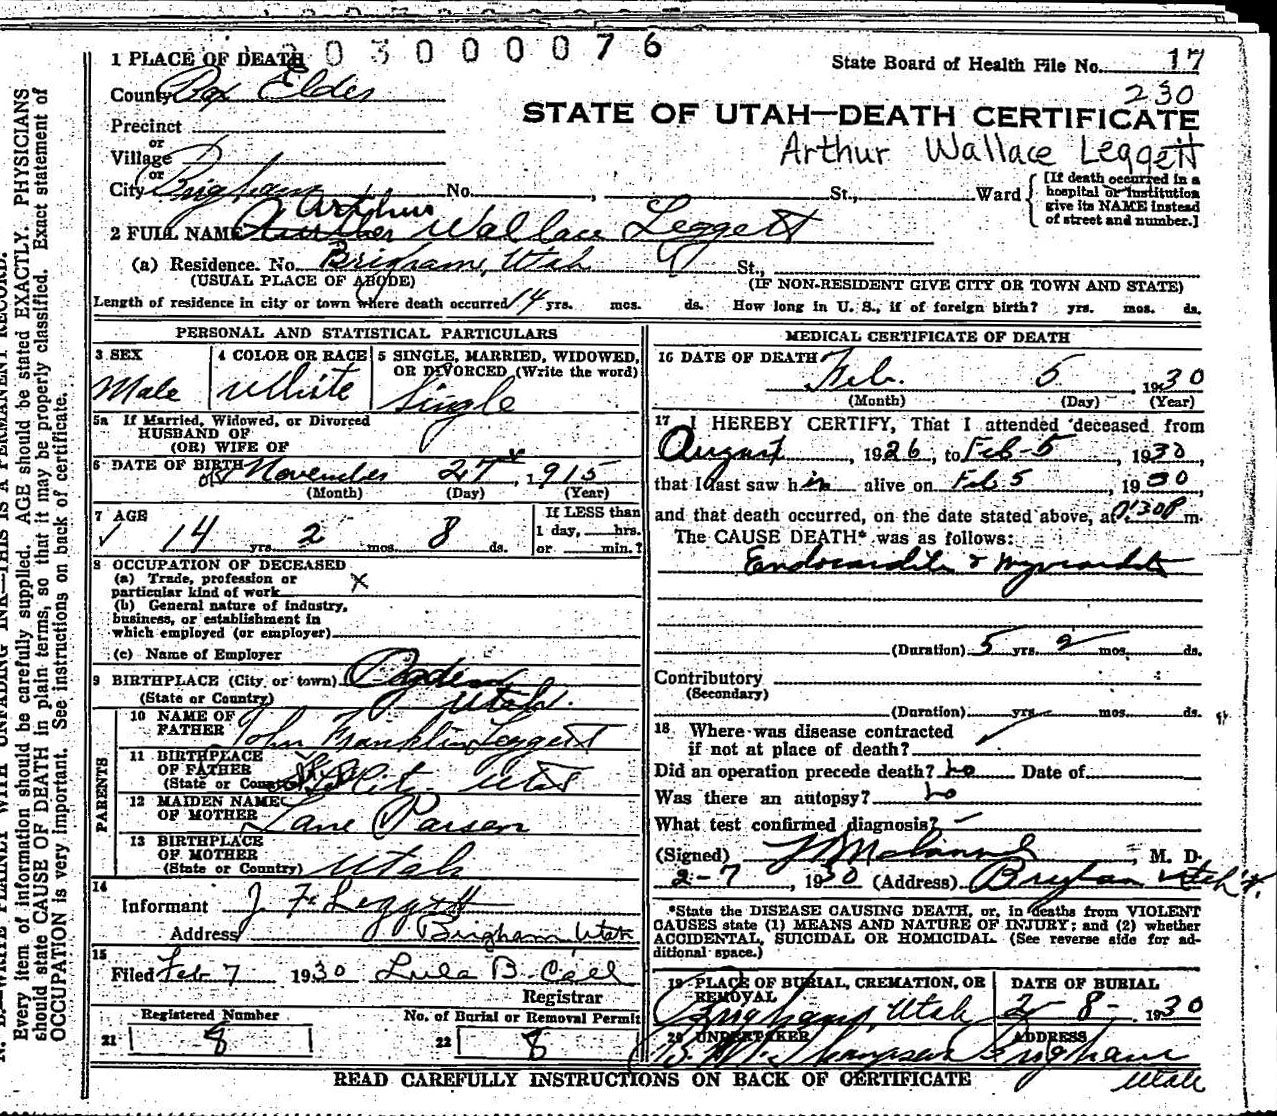 3 0 0 0 0 7 6
1 PLACE OF DEATH
State Board of Health File No. 17
County Box Elder
230
STATE OF UTAH—DEATH CERTIFICATE
Precinct
or
Village
Arthur Wallace Leggett
or
City Brigham No. , St., Ward
[If death occurred in a hospital or institution give its NAME instead of street and number.]
Arthur
2 FULL NAME Wallace Leggett
(a) Residence. No. Brigham, Utah St.,
(USUAL PLACE OF ABODE) (IF NON-RESIDENT GIVE CITY OR TOWN AND STATE)
Length of residence in city or town where death occurred 14 yrs. mos. ds. How long in U. S., if of foreign birth? yrs. mos. ds.
PERSONAL AND STATISTICAL PARTICULARS
3 SEX Male
4 COLOR OR RACE White
5 SINGLE, MARRIED, WIDOWED, OR DIVORCED (Write the word) Single
5a If Married, Widowed, or Divorced
HUSBAND OF
(OR) WIFE OF
6 DATE OF BIRTH November 27, 1915
(Month) (Day) (Year)
7 AGE 14 yrs. 2 mos. 8 ds.
If LESS than
1 day, hrs.
or min.?
8 OCCUPATION OF DECEASED
(a) Trade, profession or
particular kind of work x
(b) General nature of industry,
business, or establishment in
which employed (or employer)
(c) Name of Employer
9 BIRTHPLACE (City or town) Ogden
(State or Country) Utah.
PARENTS
10 NAME OF FATHER John Franklin Leggett
11 BIRTHPLACE OF FATHER
(State or Country) City Utah
12 MAIDEN NAME OF MOTHER Lane Parson
13 BIRTHPLACE OF MOTHER
(State or Country) Utah
14
Informant J F Leggett
Address Brigham Utah
15
Filed Feb 7 1930 Lula B. Call
Registrar
Registered Number
No. of Burial or Removal Permit
21 8
22 8
MEDICAL CERTIFICATE OF DEATH
16 DATE OF DEATH
Feb. 5, 1930
(Month) (Day) (Year)
17 I HEREBY CERTIFY, That I attended deceased from
August, 1926, to Feb-5, 1930,
that I last saw him alive on Feb 5, 1930
and that death occurred, on the date stated above, at m.
The CAUSE DEATH* was as follows:
Endocarditis & myocarditis
(Duration) 5 yrs. 2 mos. ds.
Contributory
(Secondary)
(Duration) yrs. mos. ds.
18 Where was disease contracted
if not at place of death?
Did an operation precede death? no Date of
Was there an autopsy? no
What test confirmed diagnosis? —
(Signed) , M. D.
2-7, 1930 (Address) Brigham Utah
*State the DISEASE CAUSING DEATH, or, in deaths from VIOLENT
CAUSES state (1) MEANS AND NATURE OF INJURY; and (2) whether
ACCIDENTAL, SUICIDAL OR HOMICIDAL. (See reverse side for ad-
ditional space.)
19 PLACE OF BURIAL, CREMATION, OR REMOVAL Brigham, Utah
DATE OF BURIAL 2-8-1930
20 UNDERTAKER
ADDRESS Brigham
Utah
READ CAREFULLY INSTRUCTIONS ON BACK OF CERTIFICATE
Every item of information should be carefully supplied. AGE should be stated EXACTLY. PHYSICIANS
should state CAUSE OF DEATH in plain terms, so that it may be properly classified. Exact statement of
OCCUPATION is very important. See instructions on back of certificate.